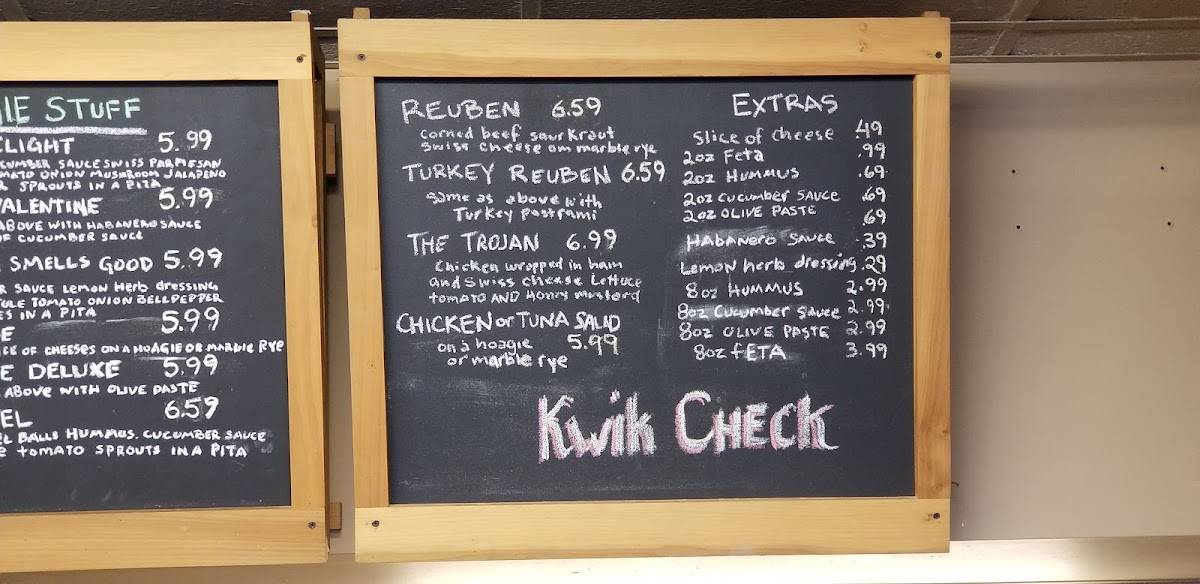 STUFF
LIGHT 5.99
CUMBER SAUCE SWISS PARMESAN
MATO ONION MUSHROOM JALAPENO
SPROUTS IN A PITA
VALENTINE 5.99
ABOVE WITH HABANERO SAUCE
OF CUCUMBER SAUCE
SMELLS GOOD 5.99
R SAUCE LEMON HERB DRESSING
TOMATO ONION BELLPEPPER
ES IN A PITA
E 5.99
OF CHEESES ON A HOAGIE OR MARBLE RYE
E DELUXE 5.99
ABOVE WITH OLIVE PASTE
EL 6.59
EL BALLS HUMMUS. CUCUMBER SAUCE
TOMATO SPROUTS IN A PITA
REUBEN 6.59
corned beef saurKraut
swiss cheese on marble rye
TURKEY REUBEN 6.59
same as above with
Turkey pastrami
THE TROJAN 6.99
Chicken wrapped in ham
and Swiss cheese Lettuce
tomato AND Honey mustard
CHICKEN or TUNA SALAD
on a hoagie 5.99
or marble rye
EXTRAS
Slice of cheese .49
2oz Feta .99
2oz HUMMUS .69
2oz CUCUMBER SAUCE .69
2oz OLIVE PASTE .69
HABANERO SAUCE .39
Lemon herb dressing .29
8oz HUMMUS 2.99
8oz Cucumber Sauce 2.99
8oz OLIVE PASTE 2.99
8oz FETA 3.99
Kwik CHECK